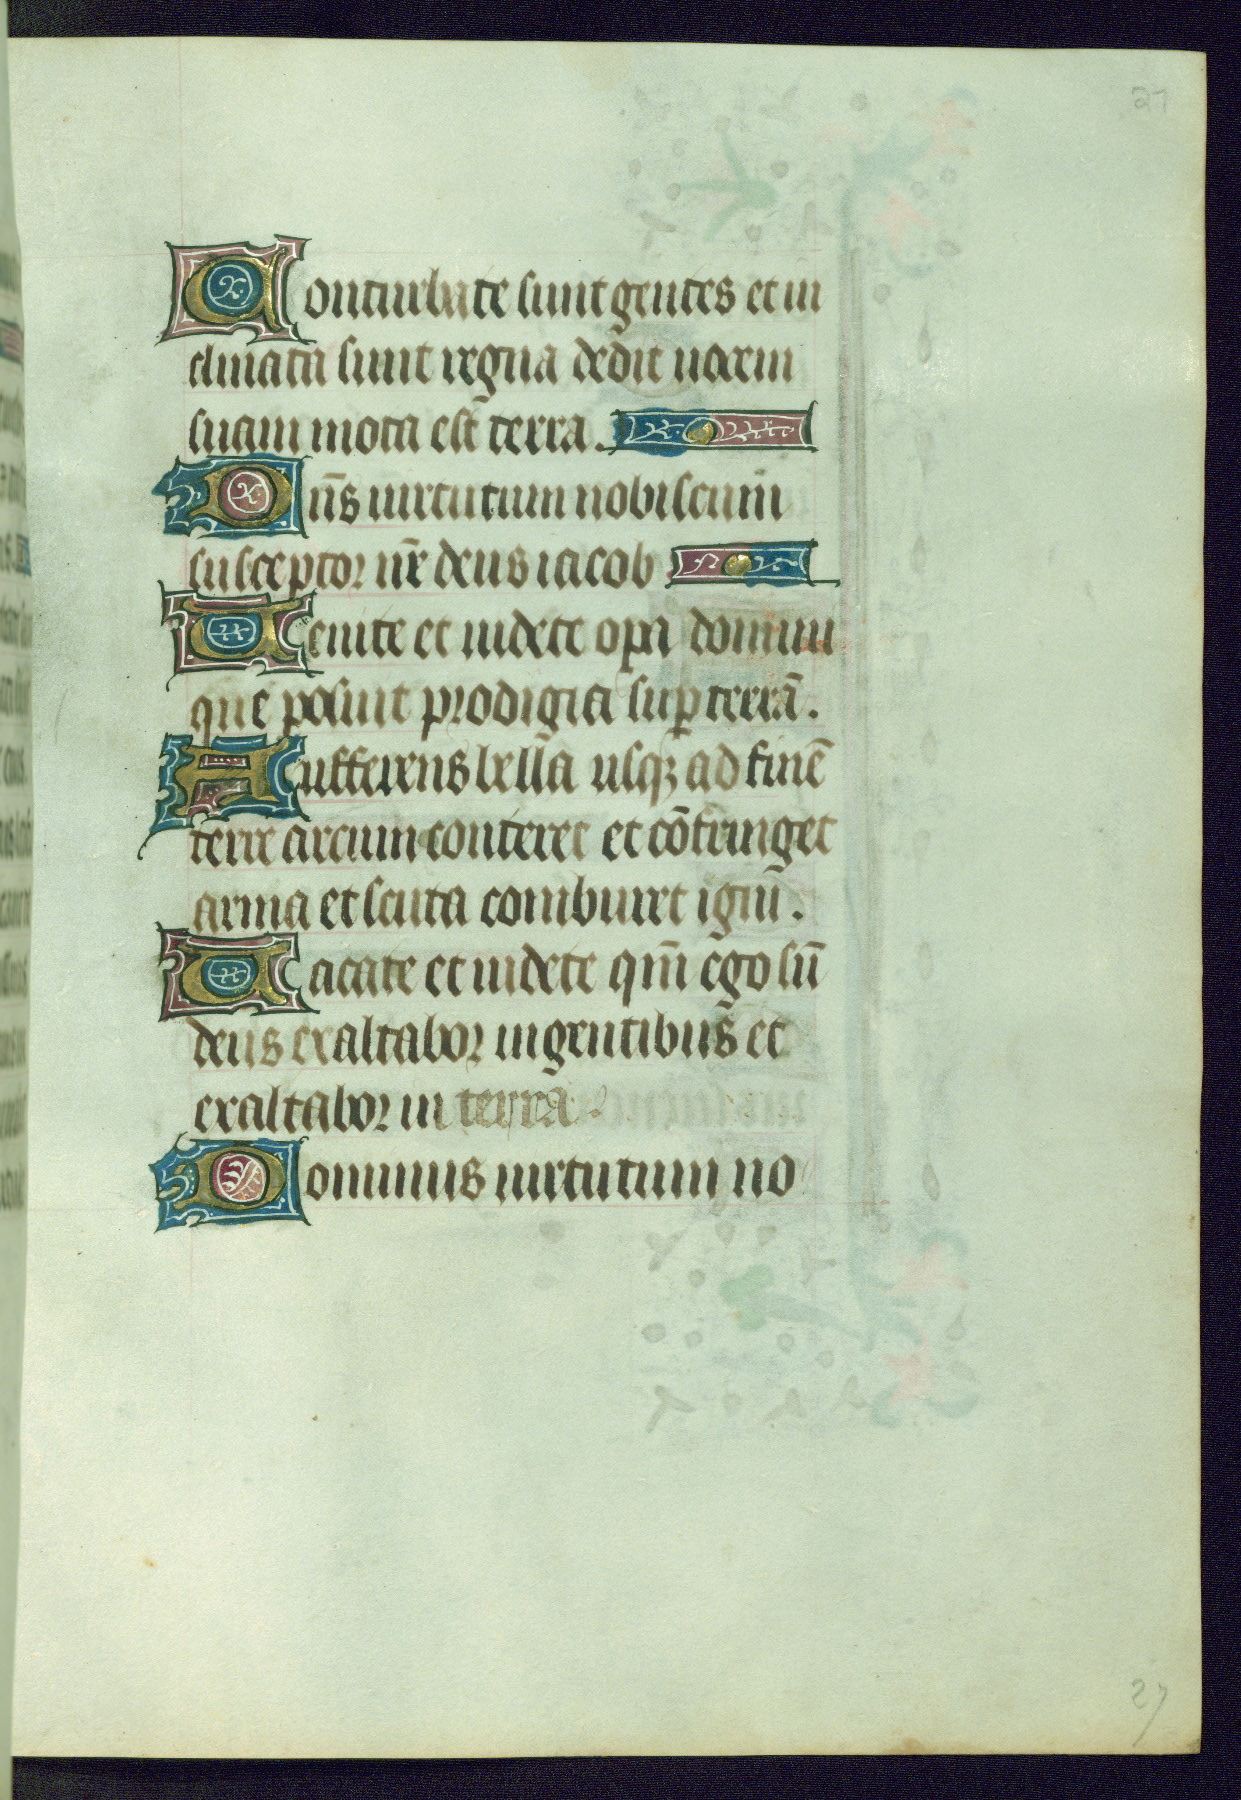 27
Conturbate sunt gentes et in
clinata sunt regna dedit uocem
suam mota est terra.
Dn̄s uirtutum nobiscum
susceptor nr̄ deus iacob
Uenite et uidete opa domini
que posuit prodigia sup terrā.
Aufferens bella usq ad finē
terre arcum conteret et cōfringet
arma et scuta comburet igni.
Uacate et uidete qm̄ ego sū
deus exaltabor in gentibus et
exaltabor in terra.
Dominus uirtutum no
27